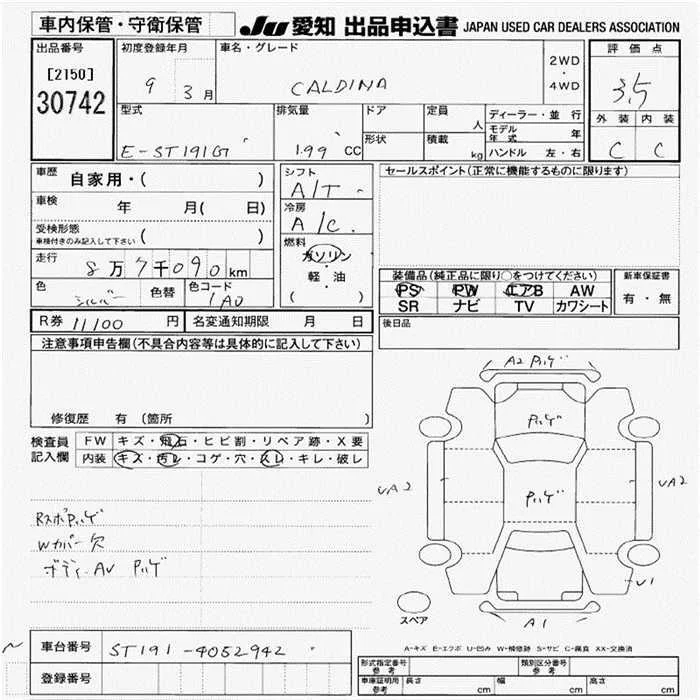 車内保管・守衛保管
JU 愛知 出品申込書 JAPAN USED CAR DEALERS ASSOCIATION
出品番号
[2150]
30742
初度登録年月
9 3月
車名・グレード
CALDINA
2WD
・
4WD
評価点
3.5
外装 内装
C C
型式
E-ST191G
排気量
1.99 CC
ドア
形状
定員
人
積載
kg
ディーラー・並行
モデル年式 年
ハンドル 左・右
車歴 自家用・( )
車検 年 月( 日)
受検形態
車検付きのみ記入して下さい ( )
走行 8万7千090km
色 シルバー 色替 色コード 1A0
シフト
A/T
冷房
A/C
燃料
ガソリン
・
軽・油
( )
セールスポイント(正常に機能するものに限ります)
装備品(純正品に限り○をつけてください)
PS PW エアB AW
SR ナビ TV カワシート
新車保証書
有・無
R券 11100 円 名変通知期限 月 日
後日品
注意事項申告欄(不具合内容等は具体的に記入して下さい)
修復歴 有 (箇所 )
検査員記入欄
FW キズ・飛石・ヒビ割・リペア跡・X要
内装 キズ・汚レ・コゲ・穴・スレ・キレ・破レ
Rスポハゲ
Wカバー欠
ボディーAV ハゲ
A2 ハゲ
ハゲ
ハゲ
UA2
UA2
U1
A1
スペア
A-キズ E-エクボ U-凹み W-補修跡 S-サビ C-腐食 XX-交換済
車台番号 ST191-4052942
登録番号
形式指定番号 参考
類別区分番号 参考
車庫証明用 参考 長さ cm 幅 cm 高さ cm